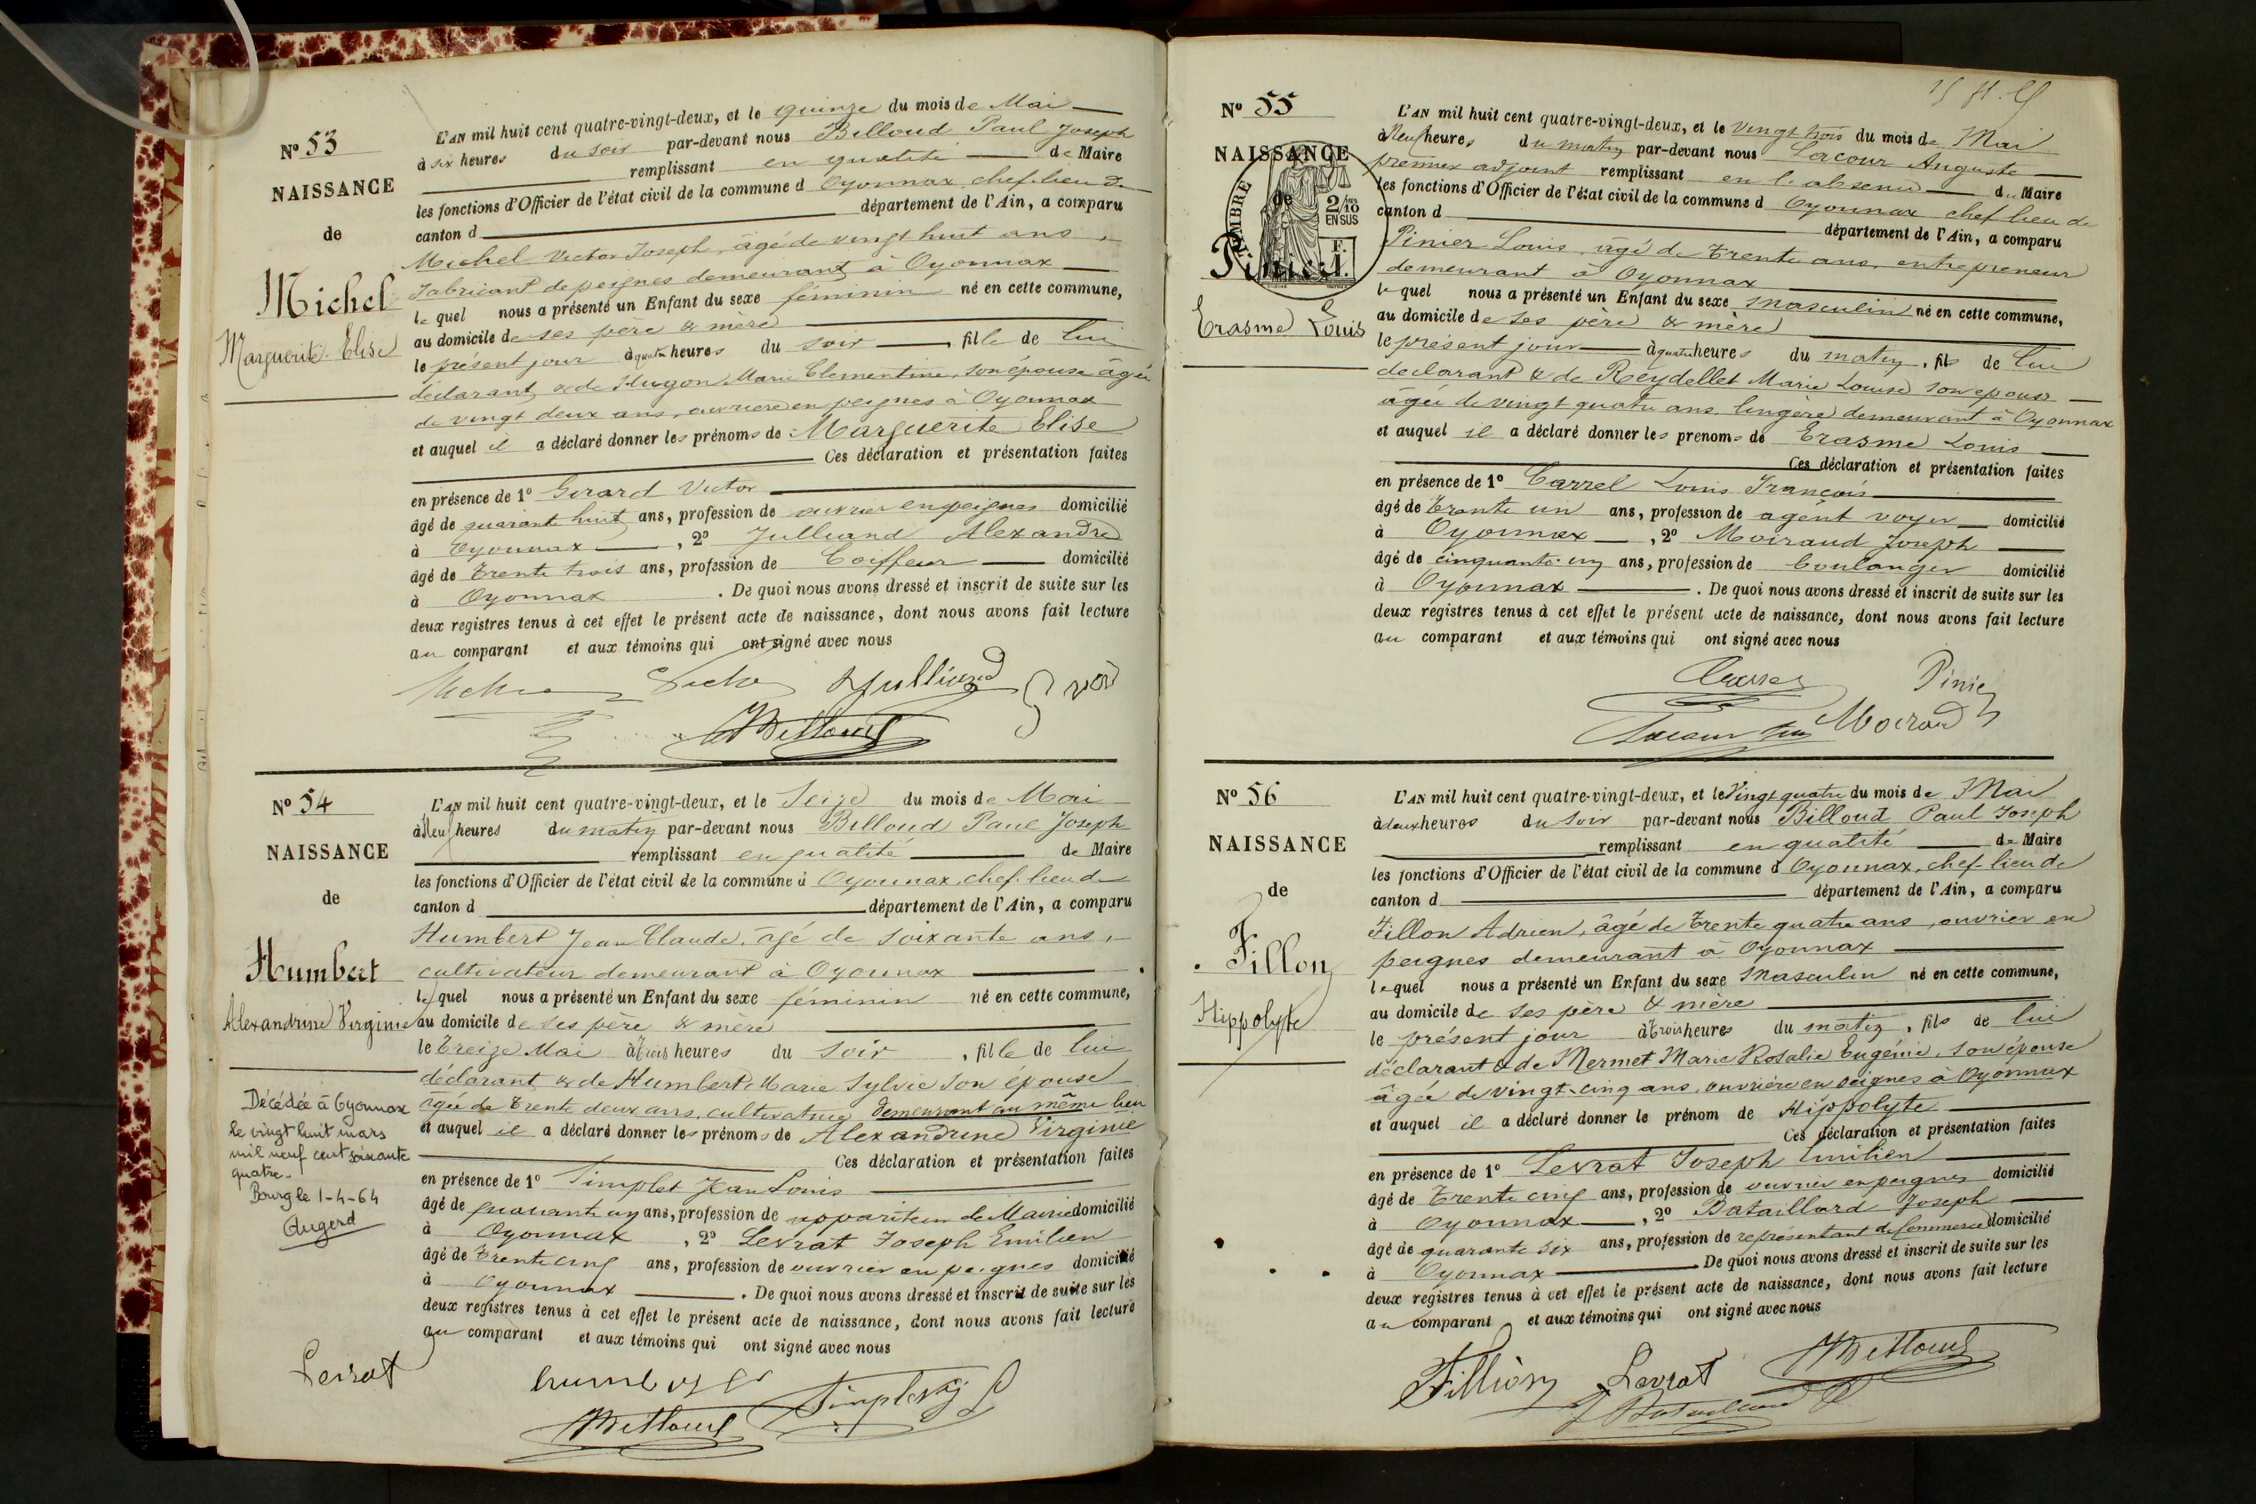 Nº 53
NAISSANCE
de
Michel
Marguerite Elise
L'AN mil huit cent quatre-vingt-deux, et le quinze du mois de Mai
à six heures du soir par-devant nous Billoud Paul Joseph
remplissant en qualité de Maire
les fonctions d'Officier de l'état civil de la commune d Oyonnax chef-lieu de
canton d département de l'Ain, a comparu
Michel Victor Joseph, âgé de vingt huit ans,
fabricant de peignes demeurant à Oyonnax
le quel nous a présenté un Enfant du sexe féminin né en cette commune,
au domicile de ses père & mère
le présent jour à quatre heures du soir, fille de lui
déclarant & de Hugon Marie Clémentine, son épouse âgée
de vingt deux ans, ouvrière en peignes à Oyonnax
et auquel il a déclaré donner les prénoms de Marguerite Elise
Ces déclaration et présentation faites
en présence de 1º Girard Victor
âgé de quarante huit ans, profession de ouvrier en peignes domicilié
à Oyonnax, 2º Julliand Alexandre
âgé de trente trois ans, profession de Coiffeur domicilié
à Oyonnax. De quoi nous avons dressé et inscrit de suite sur les
deux registres tenus à cet effet le présent acte de naissance, dont nous avons fait lecture
au comparant et aux témoins qui ont signé avec nous
Julliand
Billoud
Nº 54
NAISSANCE
de
Humbert
Alexandrine Virginie
Décédée à Oyonnax
le vingt huit mars
mil neuf cent soixante
quatre.
Bourg le 1-4-64
Augerd
L'AN mil huit cent quatre-vingt-deux, et le Seize du mois de Mai
à Neuf heures du matin par-devant nous Billoud Paul Joseph
remplissant en qualité de Maire
les fonctions d'Officier de l'état civil de la commune d Oyonnax, chef-lieu de
canton d département de l'Ain, a comparu
Humbert Jean Claude, âgé de soixante ans,
cultivateur demeurant à Oyonnax
le quel nous a présenté un Enfant du sexe féminin né en cette commune,
au domicile de ses père & mère
le treize Mai à trois heures du soir, fille de lui
déclarant & de Humbert Marie Sylvie son épouse
agée de trente deux ans, cultivatrice demeurant au même lieu
et auquel il a déclaré donner les prénoms de Alexandrine Virginie
Ces déclaration et présentation faites
en présence de 1º Simplet Jean Louis
âgé de quarante un ans, profession de appariteur de Mairie domicilié
à Oyonnax, 2º Levrat Joseph Emilien
âgé de trente cinq ans, profession de ouvrier en peignes domicilié
à Oyonnax. De quoi nous avons dressé et inscrit de suite sur les
deux registres tenus à cet effet le présent acte de naissance, dont nous avons fait lecture
au comparant et aux témoins qui ont signé avec nous
Levrat
Simplet
Billoud
Nº 55
NAISSANCE
de
TIMBRE
2/10
EN SUS
Pinier
Erasme Louis
L'AN mil huit cent quatre-vingt-deux, et le vingt trois du mois de Mai
à Neuf heures du matin par-devant nous Lacour Auguste
premier adjoint remplissant en l'absence du Maire
les fonctions d'Officier de l'état civil de la commune d Oyonnax chef lieu de
canton d département de l'Ain, a comparu
Pinier Louis, âgé de trente ans, entrepreneur
demeurant à Oyonnax
le quel nous a présenté un Enfant du sexe masculin né en cette commune,
au domicile de ses père & mère
le présent jour à quatre heures du matin, fils de lui
déclarant & de Reydellet Marie Louise son épouse
âgée de vingt quatre ans lingère demeurant à Oyonnax
et auquel il a déclaré donner les prenoms de Erasme Louis
Ces déclaration et présentation faites
en présence de 1º Carrel Louis François
âgé de trente un ans, profession de agent voyer domicilié
à Oyonnax, 2º Moiraud Joseph
âgé de cinquante-un ans, profession de boulanger domicilié
à Oyonnax. De quoi nous avons dressé et inscrit de suite sur les
deux registres tenus à cet effet le présent acte de naissance, dont nous avons fait lecture
au comparant et aux témoins qui ont signé avec nous
Pinier
Moiraud
Nº 56
NAISSANCE
de
Fillon
Hippolyte
L'AN mil huit cent quatre-vingt-deux, et le Vingt quatre du mois de Mai
à deux heures du soir par-devant nous Billoud Paul Joseph
remplissant en qualité de Maire
les fonctions d'Officier de l'état civil de la commune d Oyonnax, chef-lieu de
canton d département de l'Ain, a comparu
Fillon Adrien, âgé de trente quatre ans, ouvrier en
peignes demeurant à Oyonnax
le quel nous a présenté un Enfant du sexe masculin né en cette commune,
au domicile de ses père & mère
le présent jour à trois heures du matin, fils de lui
déclarant & de Mermet Marie Rosalie Eugénie, son épouse
âgée de vingt-cinq ans, ouvrière en peignes à Oyonnax
et auquel il a déclaré donner le prénom de Hippolyte
Ces déclaration et présentation faites
en présence de 1º Levrat Joseph Emilien
âgé de trente cinq ans, profession de ouvrier en peignes domicilié
à Oyonnax, 2º Bataillard Joseph
âgé de quarante six ans, profession de représentant de Commerce domicilié
à Oyonnax. De quoi nous avons dressé et inscrit de suite sur les
deux registres tenus à cet effet le présent acte de naissance, dont nous avons fait lecture
au comparant et aux témoins qui ont signé avec nous
Fillion
Levrat
Billoud
J Bataillard